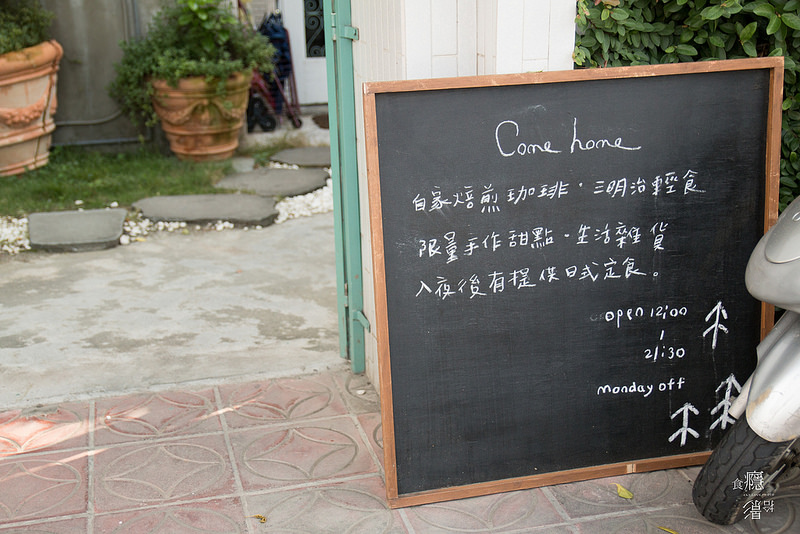 Come home
自家焙煎珈琲．三明治輕食
限量手作甜點．生活雜貨
入夜後有提供日式定食。
open 12:00
|
21:30
monday off
食癮
拾影